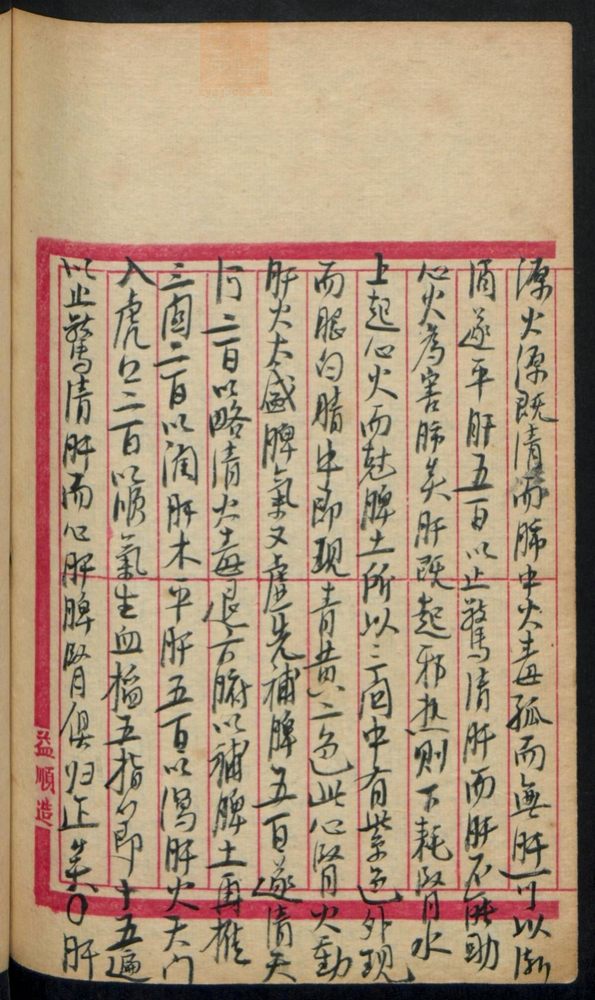 源火源既清而肺中火毒孤而無肝可以漸
消遂平肝五百以止驚清肝而肝不能助
心火為害肺矣肝既起邪热則下耗腎水
上起心火而尅脾土所以三関中有紫色外現
而眼白睛中即現青黄二色此心腎火動
肝火太盛脾氣又虚先補脾五百遂清天
河二百以略清火毒退六腑以補脾土再推
三関二百以潤肝木平肝五百以瀉肝火天门
入虎口二百以順氣生血搯五指節十五遍
以止驚清肝而心肝脾腎俱归正矣○肝
益順造